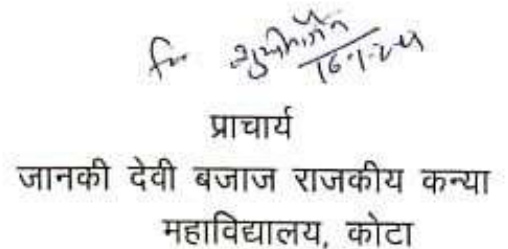 for
प्राचार्य
जानकी देवी बजाज राजकीय कन्या
महाविद्यालय, कोटा